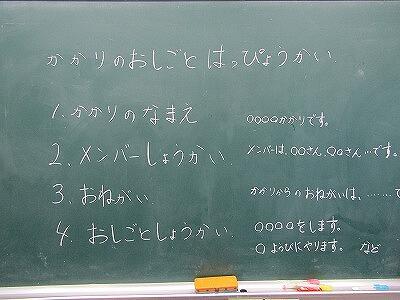 かかりのおしごと はっぴょうかい
1. かかりのなまえ
○○○○かかりです。
2. メンバーしょうかい.
メンバーは、○○さん、○○さん…です。
3. おねがい
かかりからのおねがいは、………で
4. おしごとしょうかい.
○○○○をします。
○ようびにやります。 など